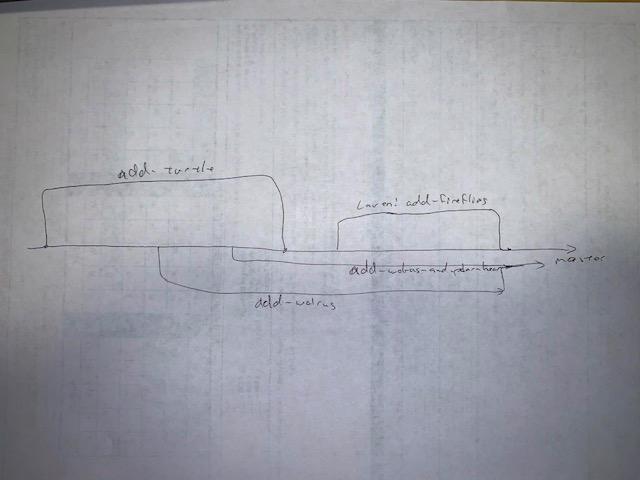 add-turtle
Lauren: add-fireflies
master
add-walrus-and-polarbear
add-walrus